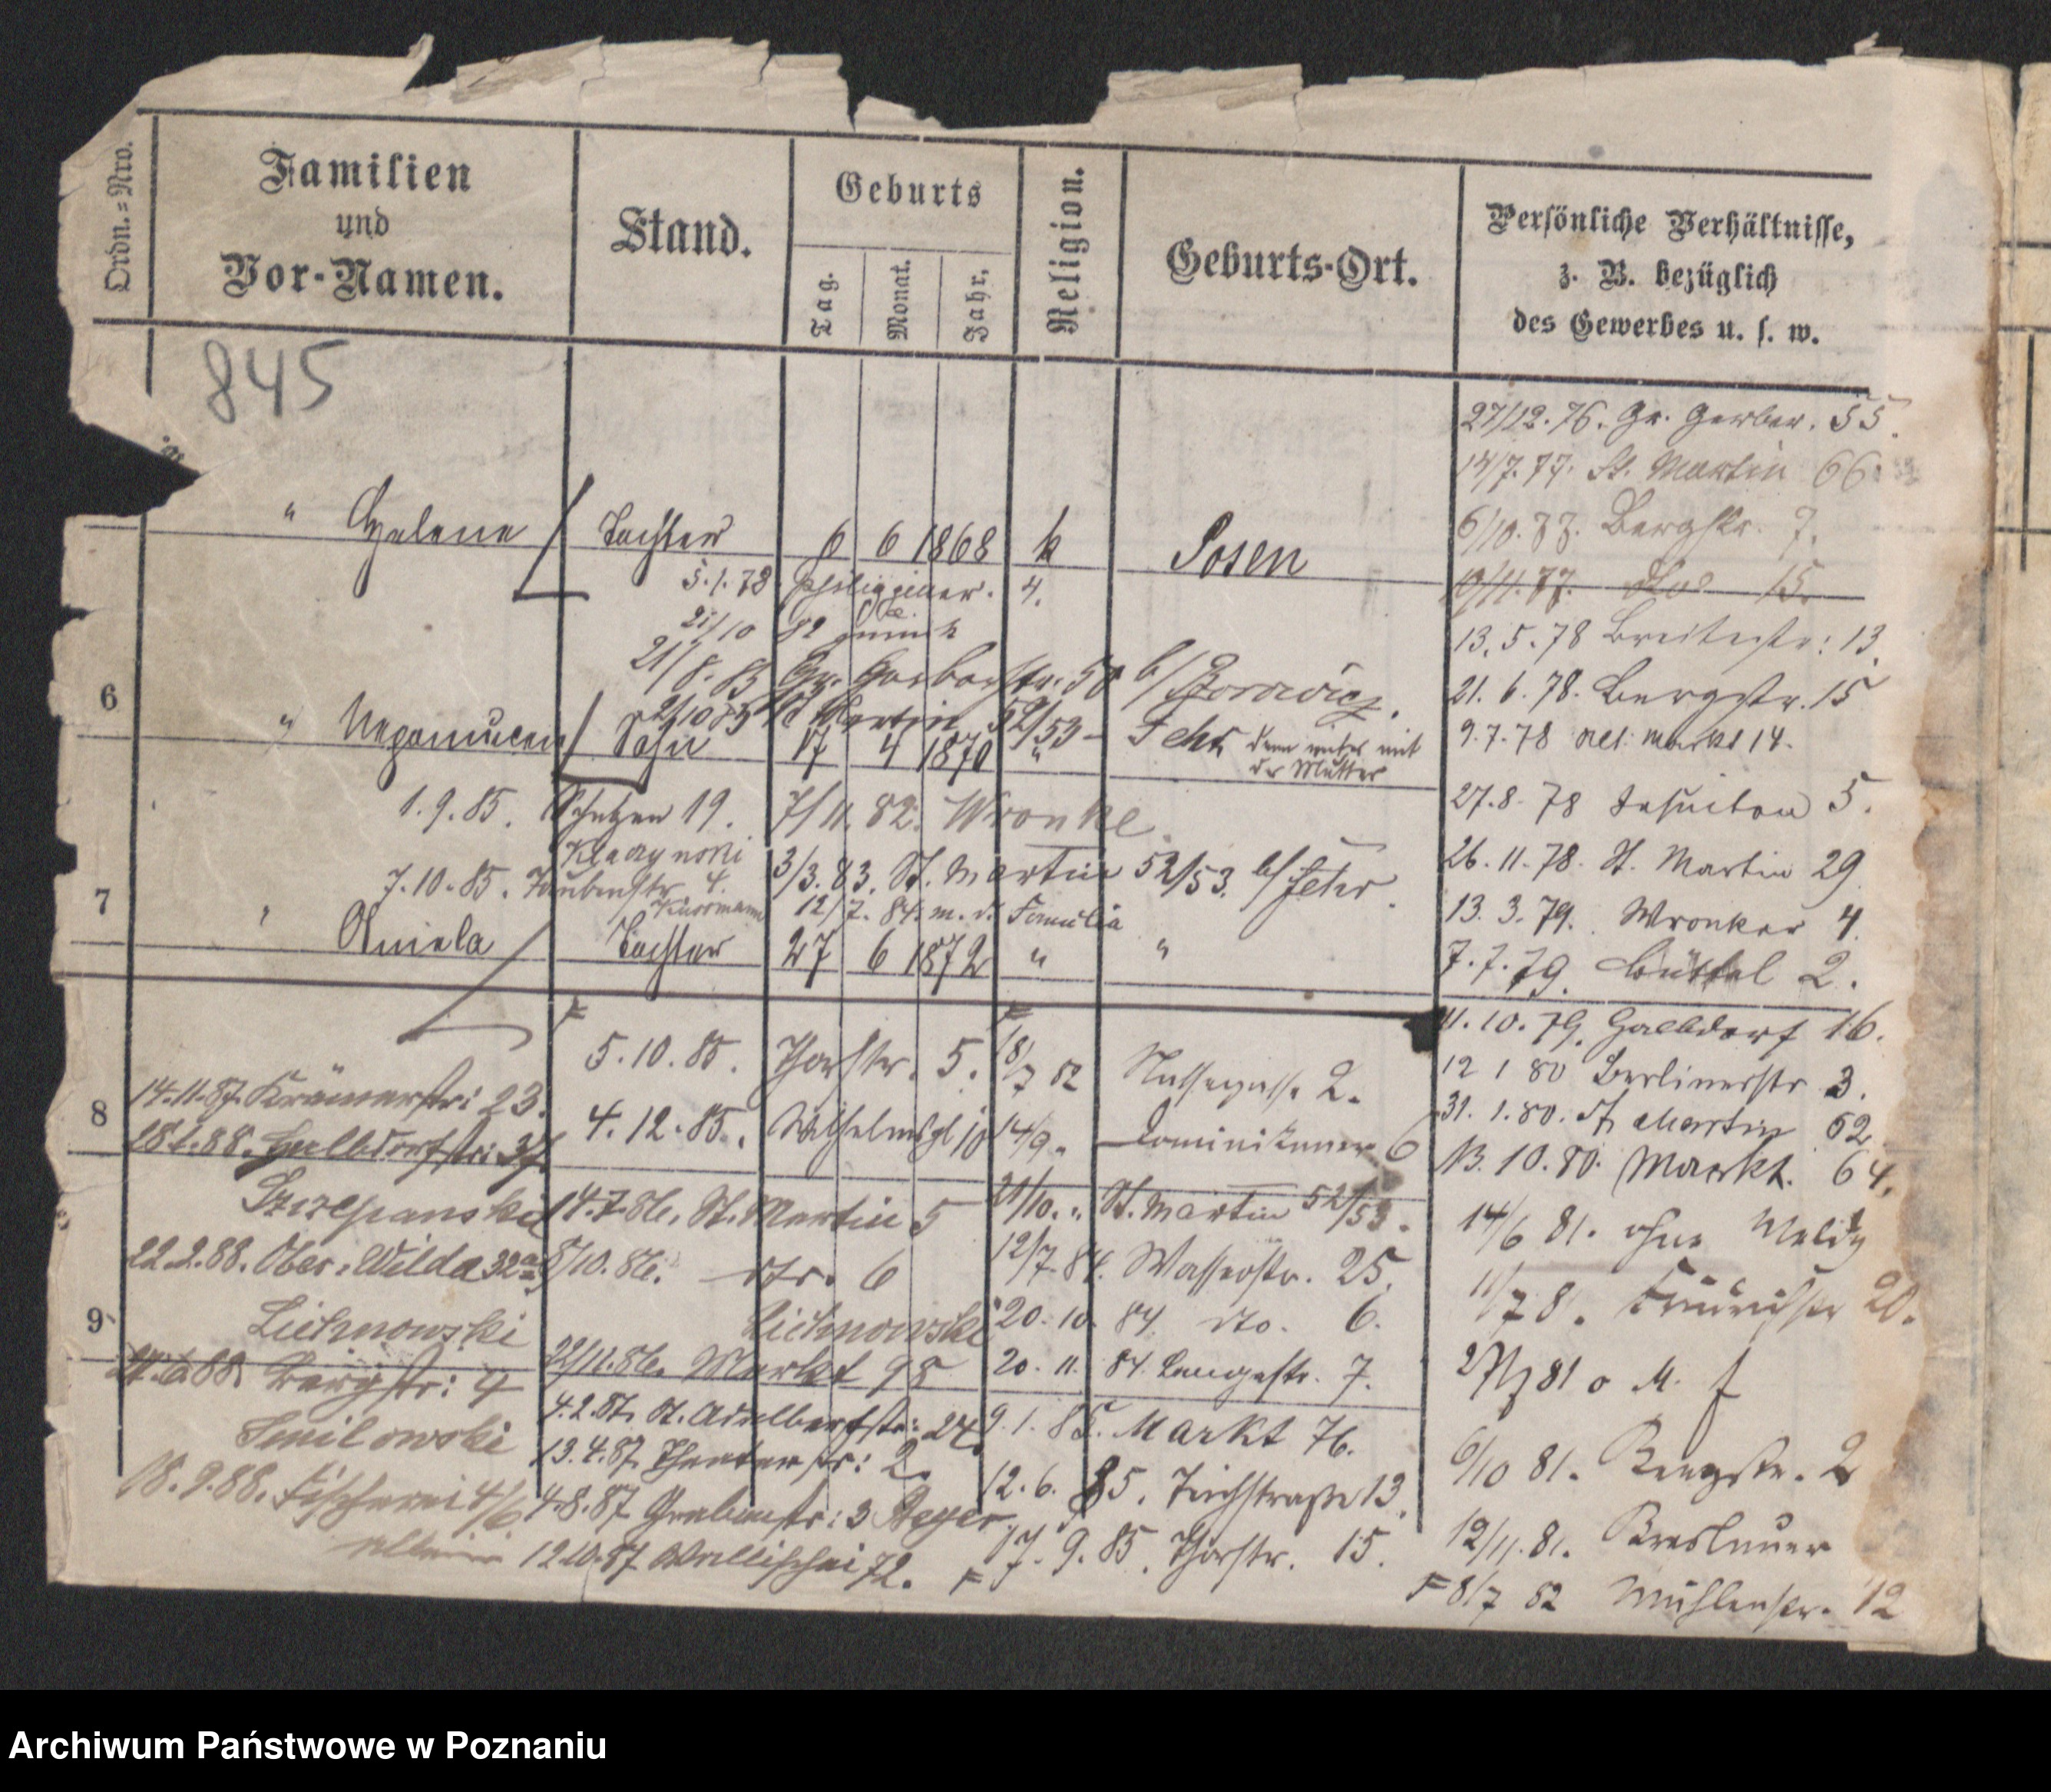 Ordn.=Nro.
Familien
und
Vor-Namen.
Stand.
Geburts
Tag.
Monat.
Jahr.
Religion.
Geburts-Ort.
Persönliche Verhältnisse,
z. B. bezüglich
des Gewerbes u. s. w.
845
" Helene Tochter 6 6 1868 k Posen
5.1.78 4.
21/10 82
21/8. 83 Gr. Gerberstr. 50 b/
2/10 83 St Martin 52/53 -
6
" Nepomucen Sohn 17 4 1870 " Fehr dann weiter mit
der Mutter
1.9.85. Schützen 19. 7/11. 82. Wronke
3/3. 83. St. Martin 52/53. b/ Fehr.
7.10.85. Taubenstr. 4.
12/7. 84. m. d. Familia
7
Aniela Tochter 27 6 1872 " "
5.10.85. Thorstr. 5.
4.12.85. Wilhelmspl 10
14.7.86. St. Martin 5
8/10.86. dto. 6
Lichnowski
22/11.86. Markt 98
4.2.87. St. Adalbertstr: 24.
13.4.87. Theaterstr: 2.
4.8.87 Grabenstr: 3 Beyer
12.10.87 Wallischei 72.
8
14.11.87. Krämerstr: 23.
28.1.88. Halbdorfstr: 37
Szczepanski
22.2.88. Ober-Wilda 32a
9
Lichnowski
88. Bergstr: 4
Smilowski
18.9.88. Fischerei 4/6
allein
18/7 82 Nassegasse 2.
14/9. " Dominikaner 6
21/10. " St. Martin 52/53.
12/7 84. Wasserstr. 25.
20. 10. 84. dto. 6.
20. 11. 84. Langestr. 7.
9. 1. 85. Markt 76.
12. 6. 85. Teichstraße 13.
17. 9. 85. Thorstr. 15.
27/12.76. Gr. Gerber. 55.
14/7.77. St. Martin 66.
6/10.77. Bergstr. 7.
19/11.77. 15.
13.5.78 Breitestr: 13.
21.6.78. Bergstr. 15
9.7.78 Alt. Markt 14.
27.8.78 Jesuiten 5.
26.11.78. St. Martin 29.
13.3.79. Wronker 4.
7.7.79. Büttel 2.
11.10.79. Halbdorf 16.
12 1 80 Berlinerstr 3.
31.1.80. St Martin 62
13.10.80. Markt. 64.
14/6 81. ohne Meldg
11/7 81. 20.
27/7 81 o M. f
6/10 81. Bergstr. 2
12/11.81. Breslauer
8/7 82 Mühlenstr. 12
Archiwum Państwowe w Poznaniu